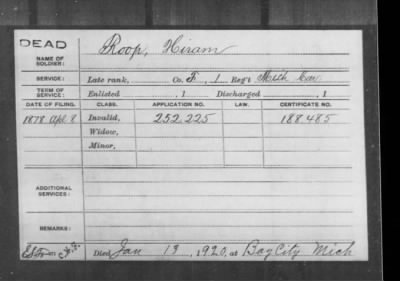 DEAD
NAME OF SOLDIER: Roop, Hiram
SERVICE: Late rank, Co. F, 1 Reg't Mich Cav
TERM OF SERVICE: Enlisted , 1 Discharged , 1
DATE OF FILING. CLASS. APPLICATION NO. LAW. CERTIFICATE NO.
1878 Apl 8 Invalid, 252.225 188.485
Widow,
Minor,
ADDITIONAL SERVICES:
REMARKS:
Died Jan 13, 1920, at Bay City Mich